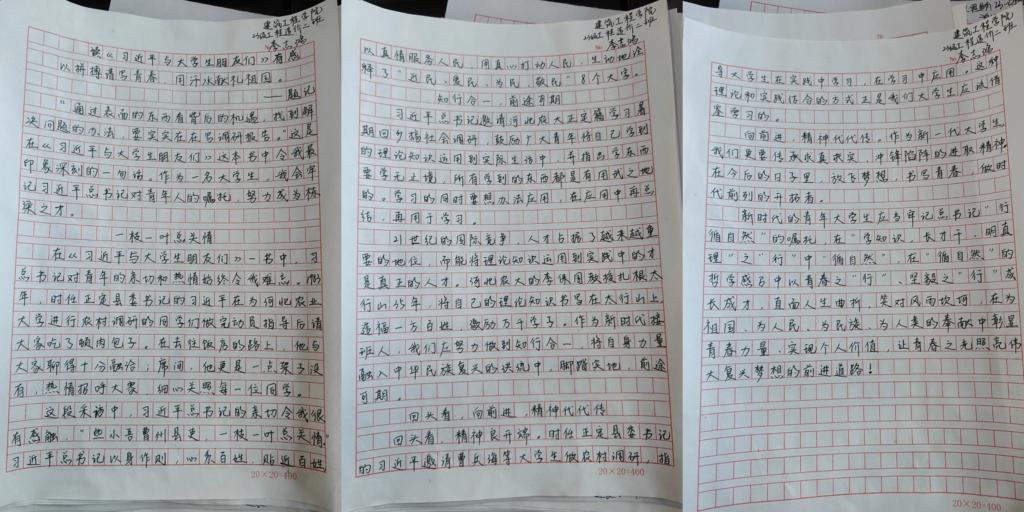 建筑工程学院
工程造价二班
李志鹏
读《习近平与大学生朋友们》有感
以拼搏谱写青春，用汗水献和祖国。
——题记
“通过表面的东西看背后的机遇，找到解
决问题的办法，要实实在在写调研报告。”这是
在《习近平与大学生朋友们》这本书中令我最
印象深刻的一句话。作为一名大学生，我会牢
记习近平总书记对青年人的嘱托，努力成为栋
梁之才。
一枝一叶总关情
在《习近平与大学生朋友们》一书中，习
总书记对青年的亲切和热情始终令我难忘。那
年，时任正定县委书记的习近平在为河北农业
大学进行农村调研的同学们做完动员指导后请
大家吃了顿肉包子。在去往饭店的路上，他与
大家聊得十分融洽；席间，他更是一点架子没
有，热情招呼大家，细心关照每一位同学。
这段采访中，习近平总书记的亲切令我很
有感触，“些小吾曹州县吏，一枝一叶总关情”
习近平总书记以身作则，心系百姓，贴近百姓
20×20=400
建筑工程学院
工程造价二班
李志鹏
以真情服务人民，用真心打动人民，生动地诠
释了“近民、爱民、为民、敬民”8个大字。
知行合一，前途可期
习近平总书记邀请河北农大正定籍学习暑
期回乡搞社会调研，鼓励广大青年将自己学到
的理论知识运用到实际生活中，并指出学东西
要学无止境，所有学到的东西都是有用武之地
的。学习的同时要想办法应用，在应用中再总
结，再用于学习。
21世纪的国际竞争，人才占据了越来越重
要的地位，而能将理论知识运用到实践中的才
是真正的人才。河北农大的李保国教授扎根太
行山35年，将自己的理论知识书写在太行山上，
造福一方百姓，激励万千学子。作为新时代接
班人，我们应努力做到知行合一，将自身力量
融入中华民族复兴的洪流中，脚踏实地，前途
可期。
回头看，向前进，精神代代传
回头看，精神良开端。时任正定县委书记
的习近平邀请曹兵海等大学生做农村调研，指
20×20=400
建筑工程学院
工程造价二班
李志鹏
导大学生在实践中学习，在学习中应用。这种
理论和实践结合的方式正是我们大学生应该借
鉴学习的。
向前进，精神代代传。作为新一代大学生
我们更要传承求真求实，冲锋陷阵的进取精神
在今后的日子里，放飞梦想，书写青春，做时
代前列的开拓者。
新时代的青年大学生应当牢记总书记“行
循自然”的嘱托，在“学知识，长才干，明真
理”之“行”中“循自然”，在“循自然”的
哲学感召中以青春之“行”、坚毅之“行”成
长成才，直面人生曲折，笑对风雨坎坷，在为
祖国、为人民、为民族、为人类的奉献中彰显
青春力量，实现个人价值，让青春之光照亮伟
大复兴梦想的前进道路！
20×20=400